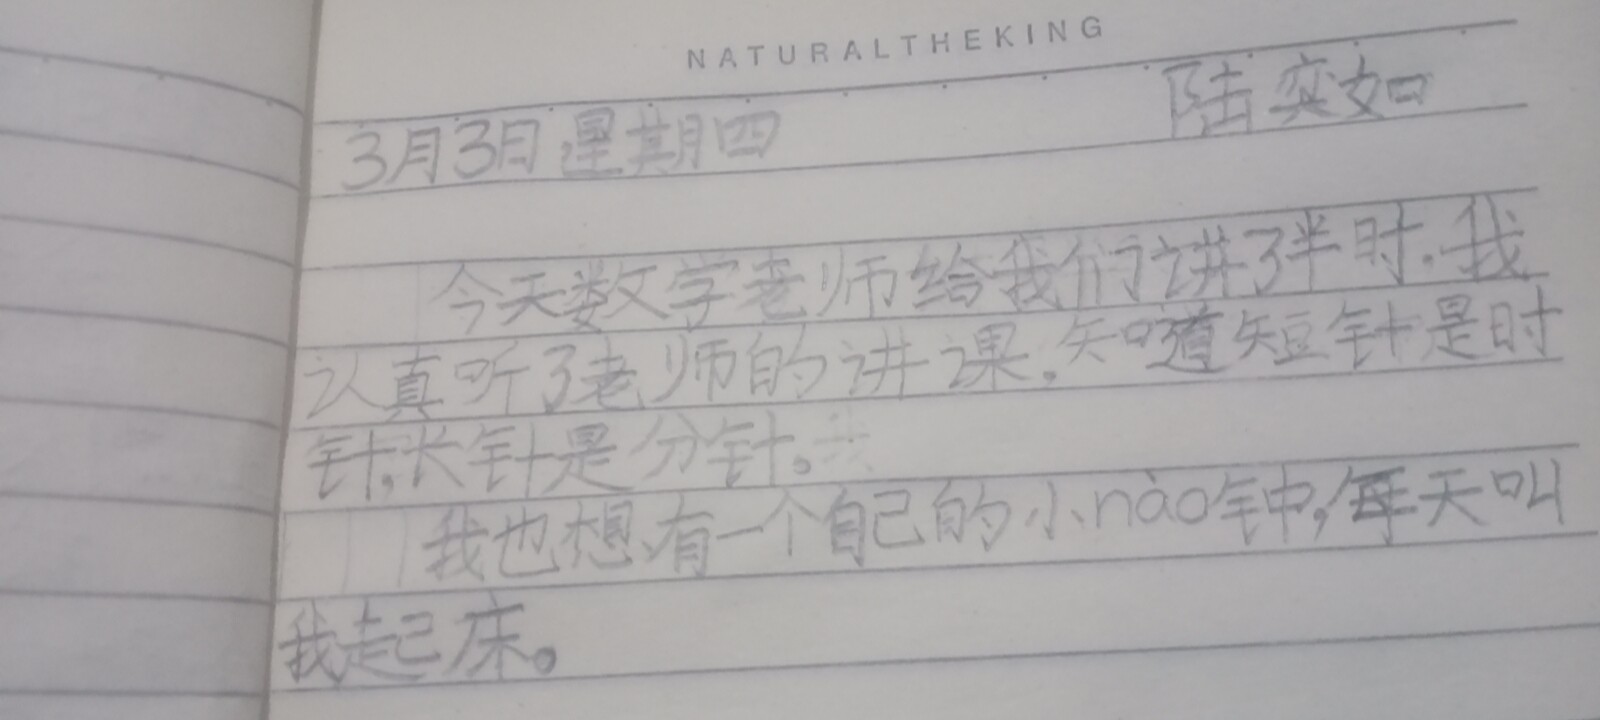 NATURALTHEKING
3月3日星期四 陆奕如
今天数学老师给我们讲了半时.我
认真听了老师的讲课.知道短针是时
针,长针是分针。我
我也想有一个自己的小nào钟,每天叫
我起床。